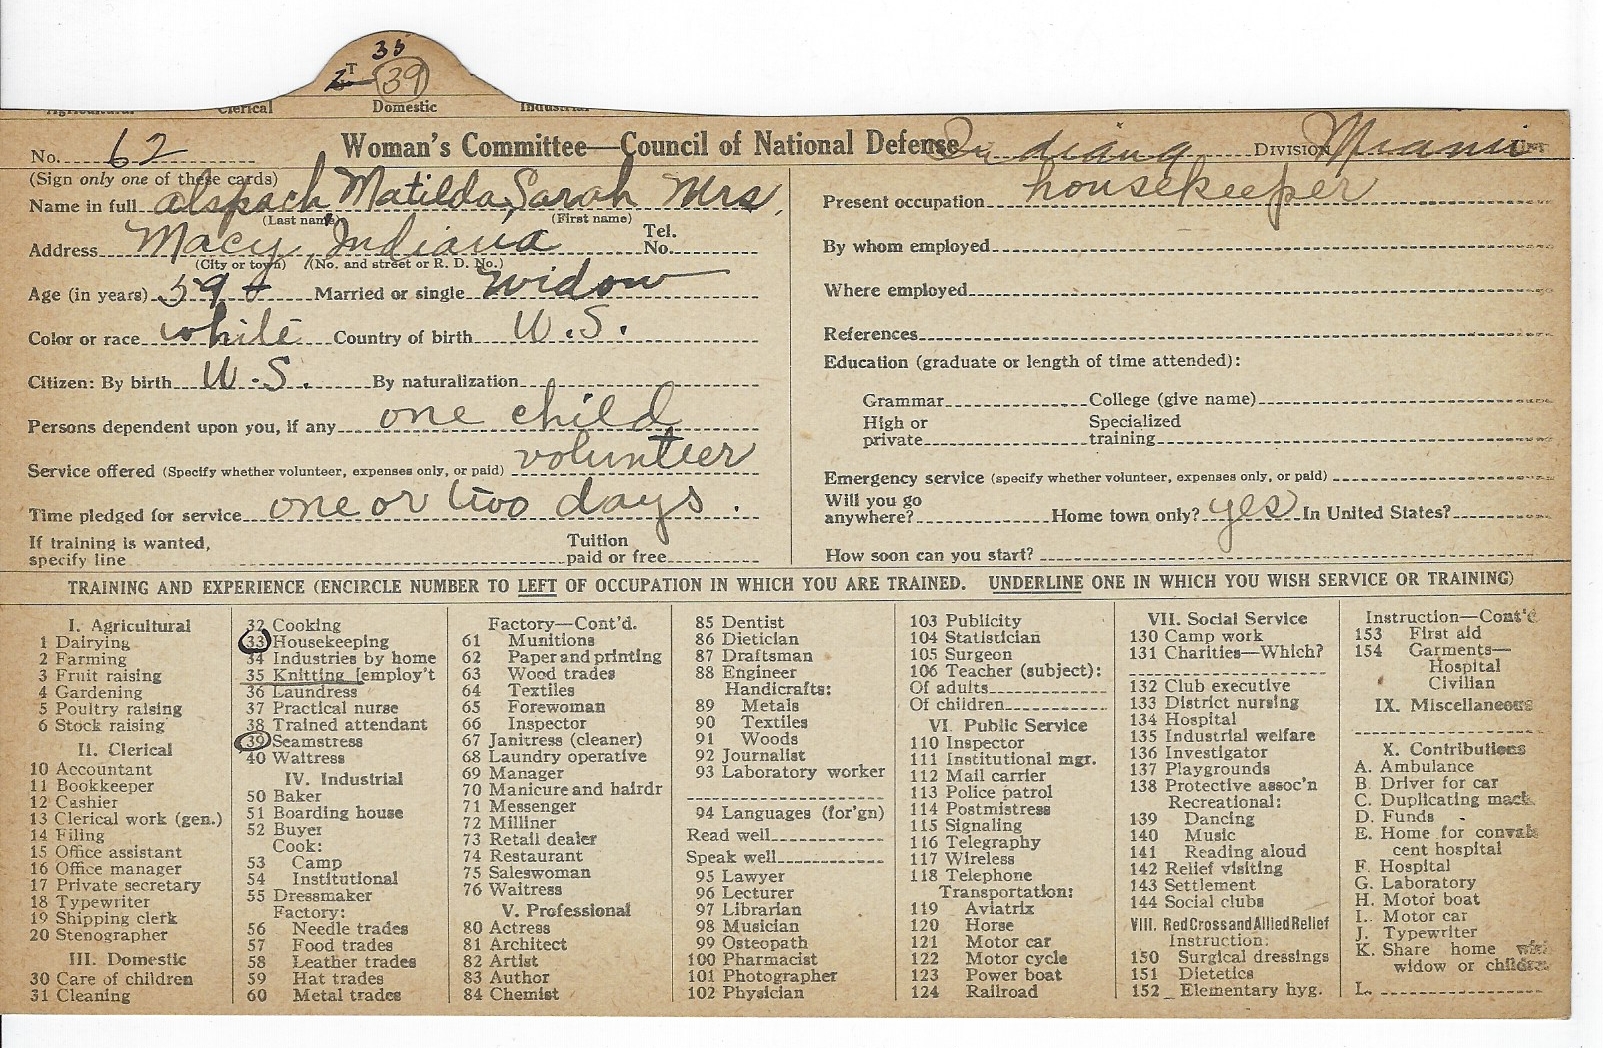 35
2T 39
Agricultural Clerical Domestic Industrial
No. 62 Woman's Committee—Council of National Defense Indiana Division Miami
(Sign only one of these cards)
Name in full Alspach, Matilda, Sarah Mrs.
(Last name) (First name)
Address Macy, Indiana Tel. No.
(City or town) (No. and street or R. D. No.)
Age (in years) 59 Married or single Widow
Color or race white Country of birth U.S.
Citizen: By birth U.S. By naturalization
Persons dependent upon you, if any one child
Service offered (Specify whether volunteer, expenses only, or paid) volunteer
Time pledged for service one or two days.
If training is wanted, specify line Tuition paid or free
Present occupation housekeeper
By whom employed
Where employed
References
Education (graduate or length of time attended):
Grammar College (give name)
High or private Specialized training
Emergency service (specify whether volunteer, expenses only, or paid)
Will you go anywhere? Home town only? yes In United States?
How soon can you start?
TRAINING AND EXPERIENCE (ENCIRCLE NUMBER TO LEFT OF OCCUPATION IN WHICH YOU ARE TRAINED. UNDERLINE ONE IN WHICH YOU WISH SERVICE OR TRAINING)
I. Agricultural
1 Dairying
2 Farming
3 Fruit raising
4 Gardening
5 Poultry raising
6 Stock raising
II. Clerical
10 Accountant
11 Bookkeeper
12 Cashier
13 Clerical work (gen.)
14 Filing
15 Office assistant
16 Office manager
17 Private secretary
18 Typewriter
19 Shipping clerk
20 Stenographer
III. Domestic
30 Care of children
31 Cleaning
32 Cooking
33 Housekeeping
34 Industries by home
35 Knitting [employ't
36 Laundress
37 Practical nurse
38 Trained attendant
39 Seamstress
40 Waitress
IV. Industrial
50 Baker
51 Boarding house
52 Buyer
Cook:
53 Camp
54 Institutional
55 Dressmaker
Factory:
56 Needle trades
57 Food trades
58 Leather trades
59 Hat trades
60 Metal trades
Factory—Cont'd.
61 Munitions
62 Paper and printing
63 Wood trades
64 Textiles
65 Forewoman
66 Inspector
67 Janitress (cleaner)
68 Laundry operative
69 Manager
70 Manicure and hairdr
71 Messenger
72 Milliner
73 Retail dealer
74 Restaurant
75 Saleswoman
76 Waitress
V. Professional
80 Actress
81 Architect
82 Artist
83 Author
84 Chemist
85 Dentist
86 Dietician
87 Draftsman
88 Engineer
Handicrafts:
89 Metals
90 Textiles
91 Woods
92 Journalist
93 Laboratory worker
94 Languages (for'gn)
Read well
Speak well
95 Lawyer
96 Lecturer
97 Librarian
98 Musician
99 Osteopath
100 Pharmacist
101 Photographer
102 Physician
103 Publicity
104 Statistician
105 Surgeon
106 Teacher (subject):
Of adults
Of children
VI. Public Service
110 Inspector
111 Institutional mgr.
112 Mail carrier
113 Police patrol
114 Postmistress
115 Signaling
116 Telegraphy
117 Wireless
118 Telephone
Transportation:
119 Aviatrix
120 Horse
121 Motor car
122 Motor cycle
123 Power boat
124 Railroad
VII. Social Service
130 Camp work
131 Charities—Which?
132 Club executive
133 District nursing
134 Hospital
135 Industrial welfare
136 Investigator
137 Playgrounds
138 Protective assoc'n
Recreational:
139 Dancing
140 Music
141 Reading aloud
142 Relief visiting
143 Settlement
144 Social clubs
VIII. Red Cross and Allied Relief
Instruction:
150 Surgical dressings
151 Dietetics
152 Elementary hyg.
Instruction—Cont'd.
153 First aid
154 Garments—
Hospital
Civilian
IX. Miscellaneous
X. Contributions
A. Ambulance
B. Driver for car
C. Duplicating mach.
D. Funds
E. Home for convales
cent hospital
F. Hospital
G. Laboratory
H. Motor boat
I. Motor car
J. Typewriter
K. Share home with
widow or children
L.